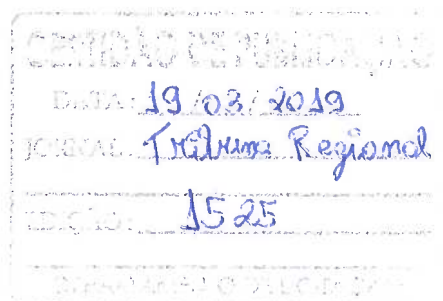 CERTIDÃO DE PUBLICAÇÃO
DATA: 19/03/2019
JORNAL: Tribuna Regional
EDIÇÃO: 1525